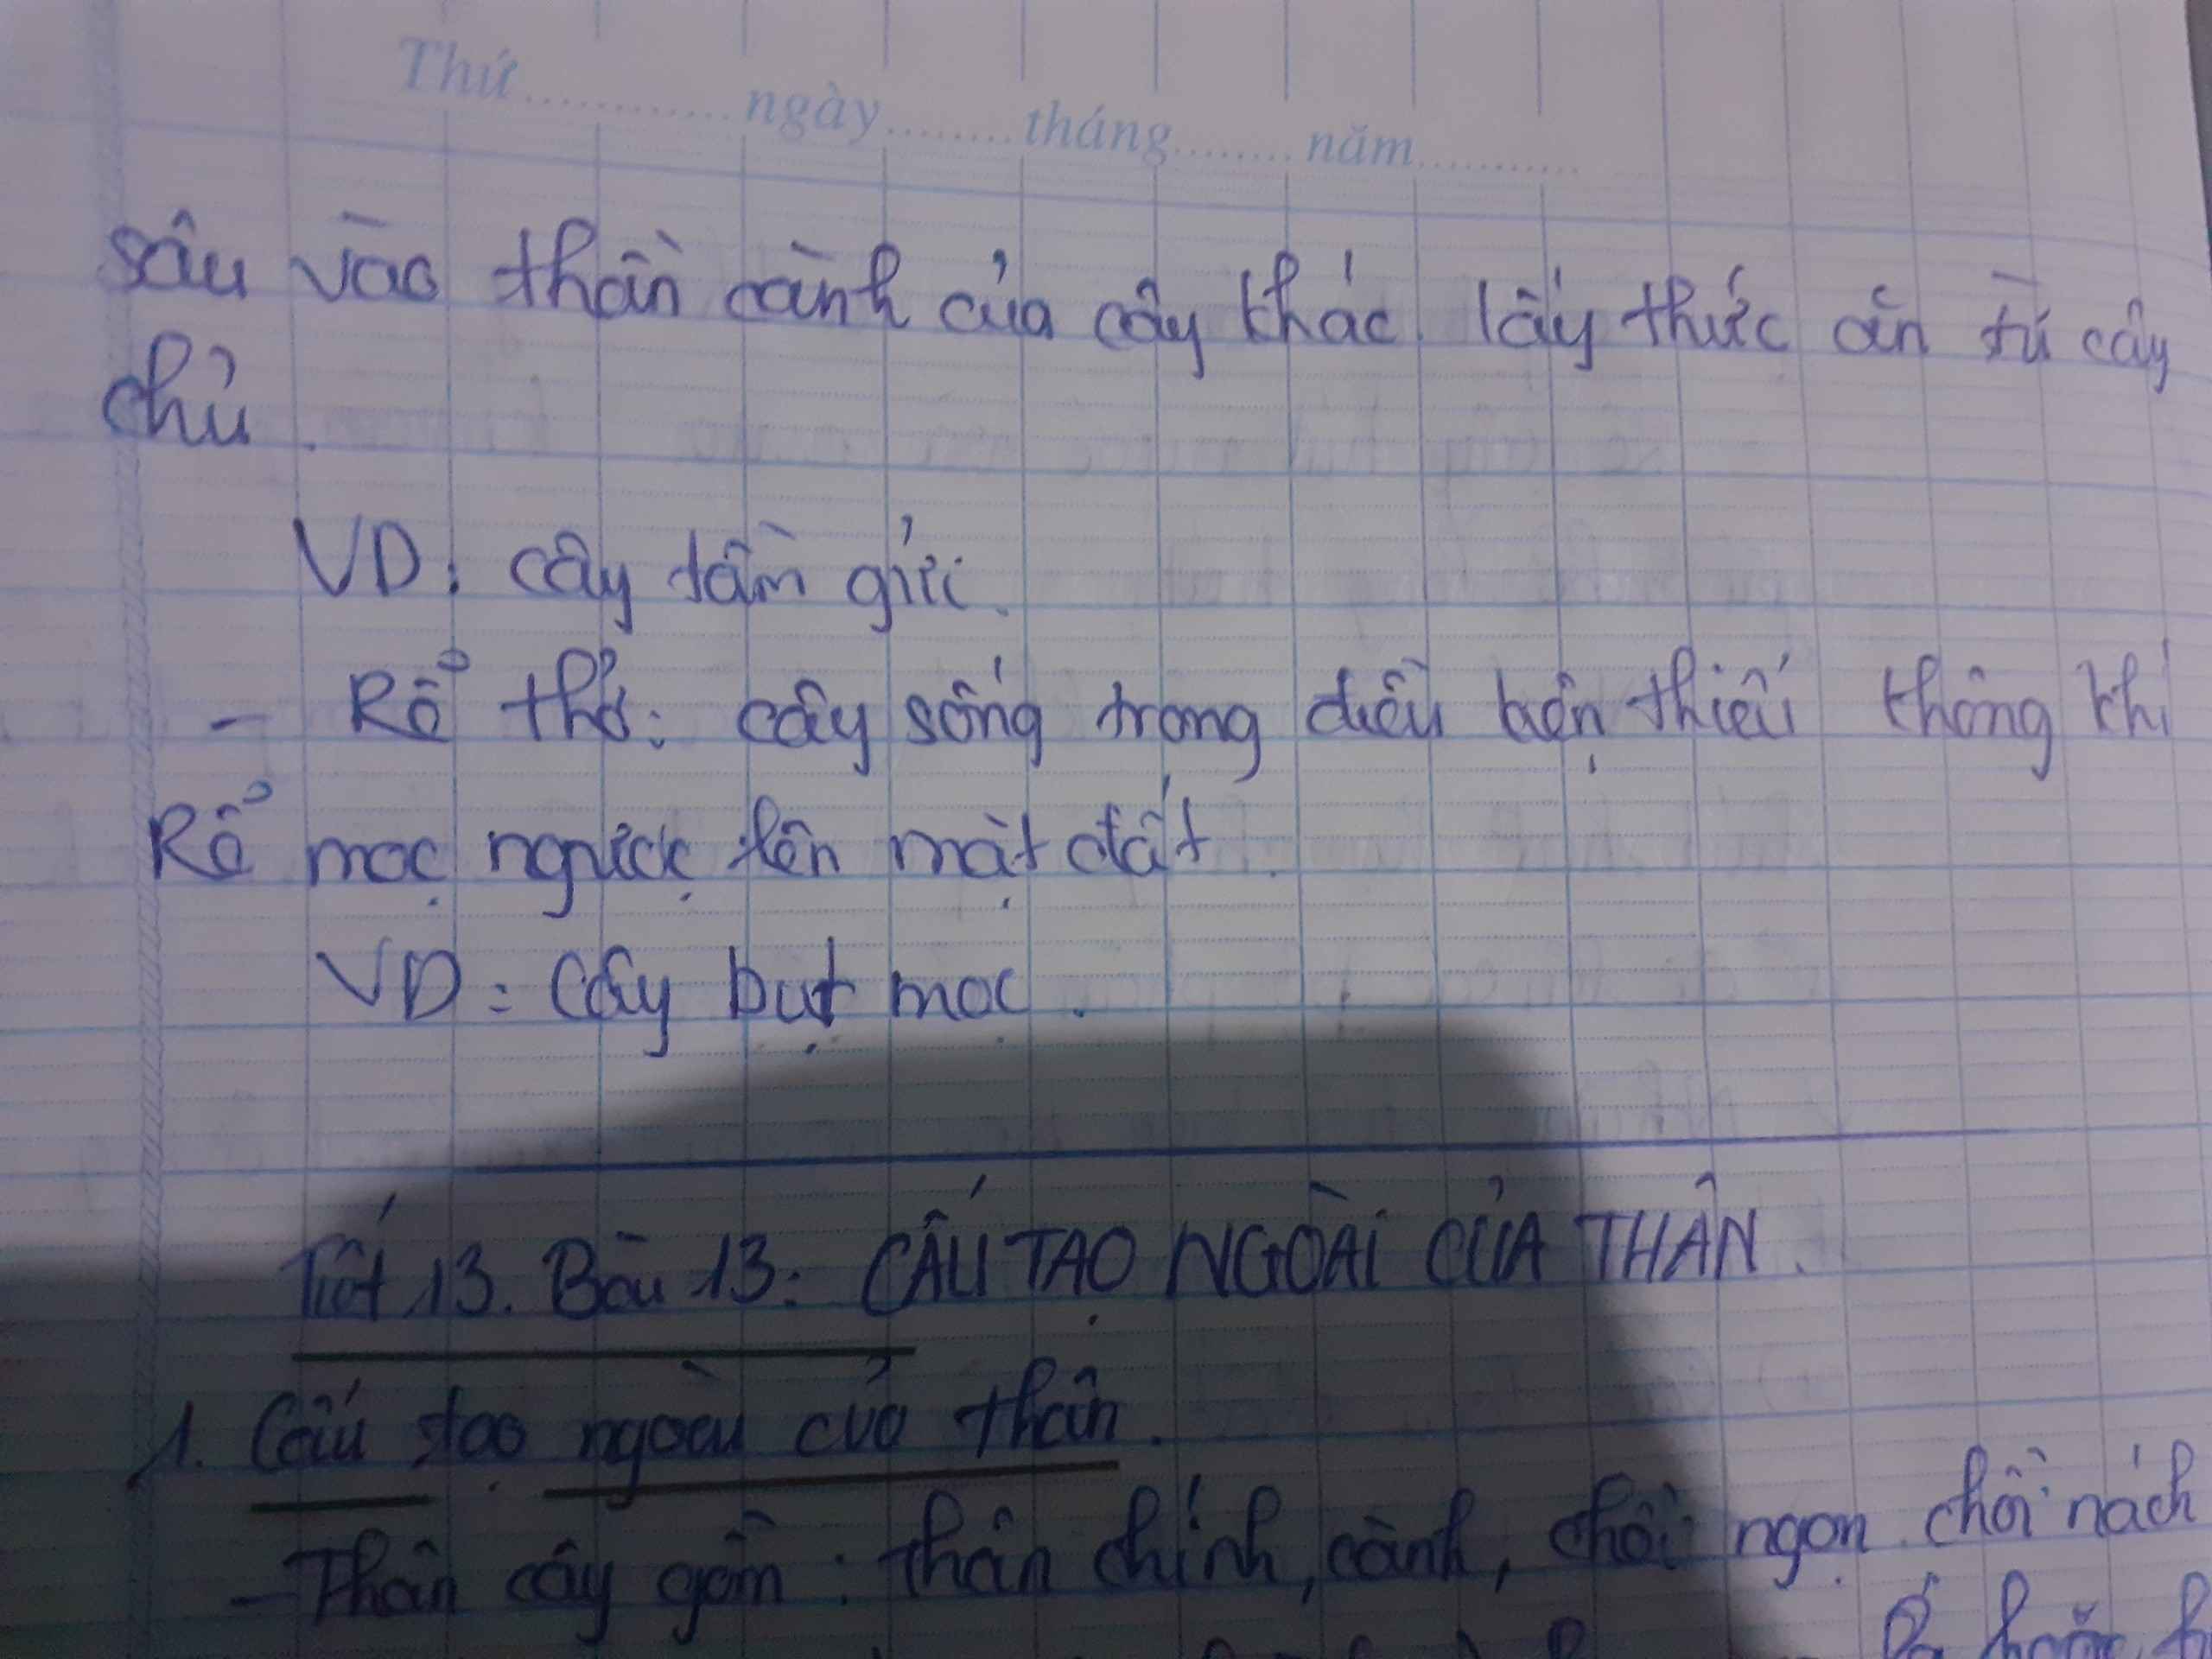 Thứ............ngày........tháng........năm..........
sâu vào thân cành của cây khác lấy thức ăn từ cây
chủ.
VD: cây tầm gửi.
- Rễ thở: cây sống trong điều kiện thiếu không khí
Rễ mọc ngược lên mặt đất.
VD: Cây bụt mọc.
Tiết 13. Bài 13: CẤU TẠO NGOÀI CỦA THÂN.
1. Cấu tạo ngoài của thân.
- Thân cây gồm: thân chính, cành, chồi ngọn chồi nách
hoặc